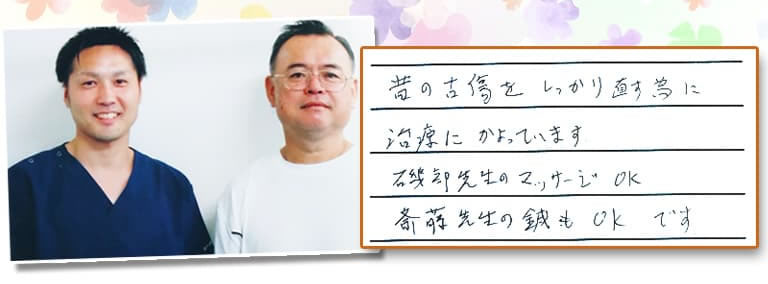 昔の古傷を しっかり直す為に
治療に かよっています
磯部先生のマッサージ OK
斎藤先生の鍼も OK です